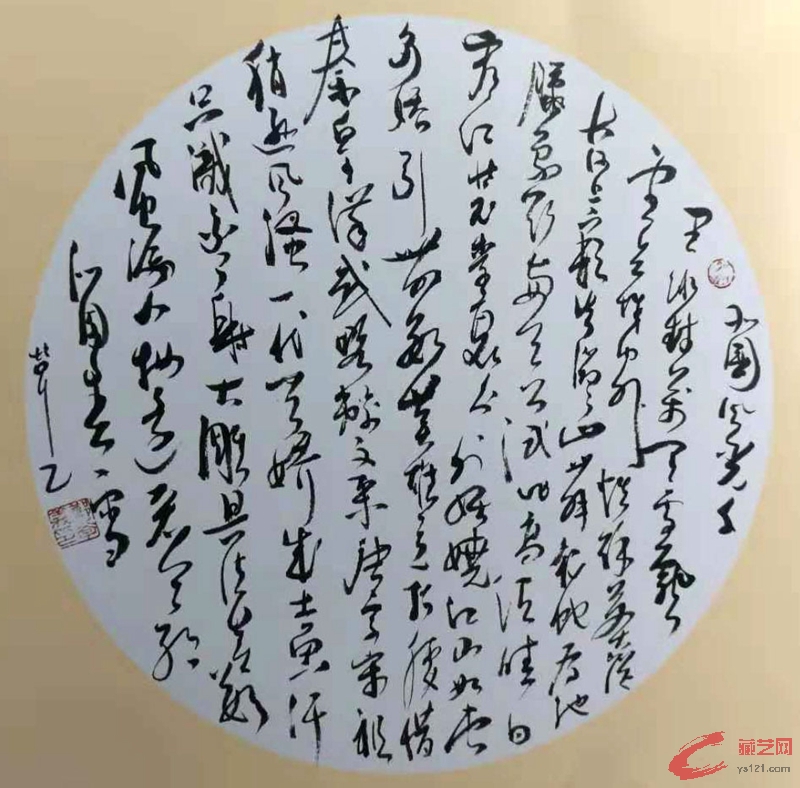 北國风光千
里冰封萬里雪飘
望长城内外惟馀莽
大河上下頓失滔滔山舞銀蛇原馳
蠟象欲与天公试比高须晴日
看红装素裹分外妖娆江山如此
多娇引無数英雄竞折腰惜
秦皇汉武略输文采唐宗宋祖
稍逊风骚一代天骄成吉思汗
只识弯弓射大雕具往矣数
風流人物还看今朝
沁园春雪
藏艺网
ys121.com